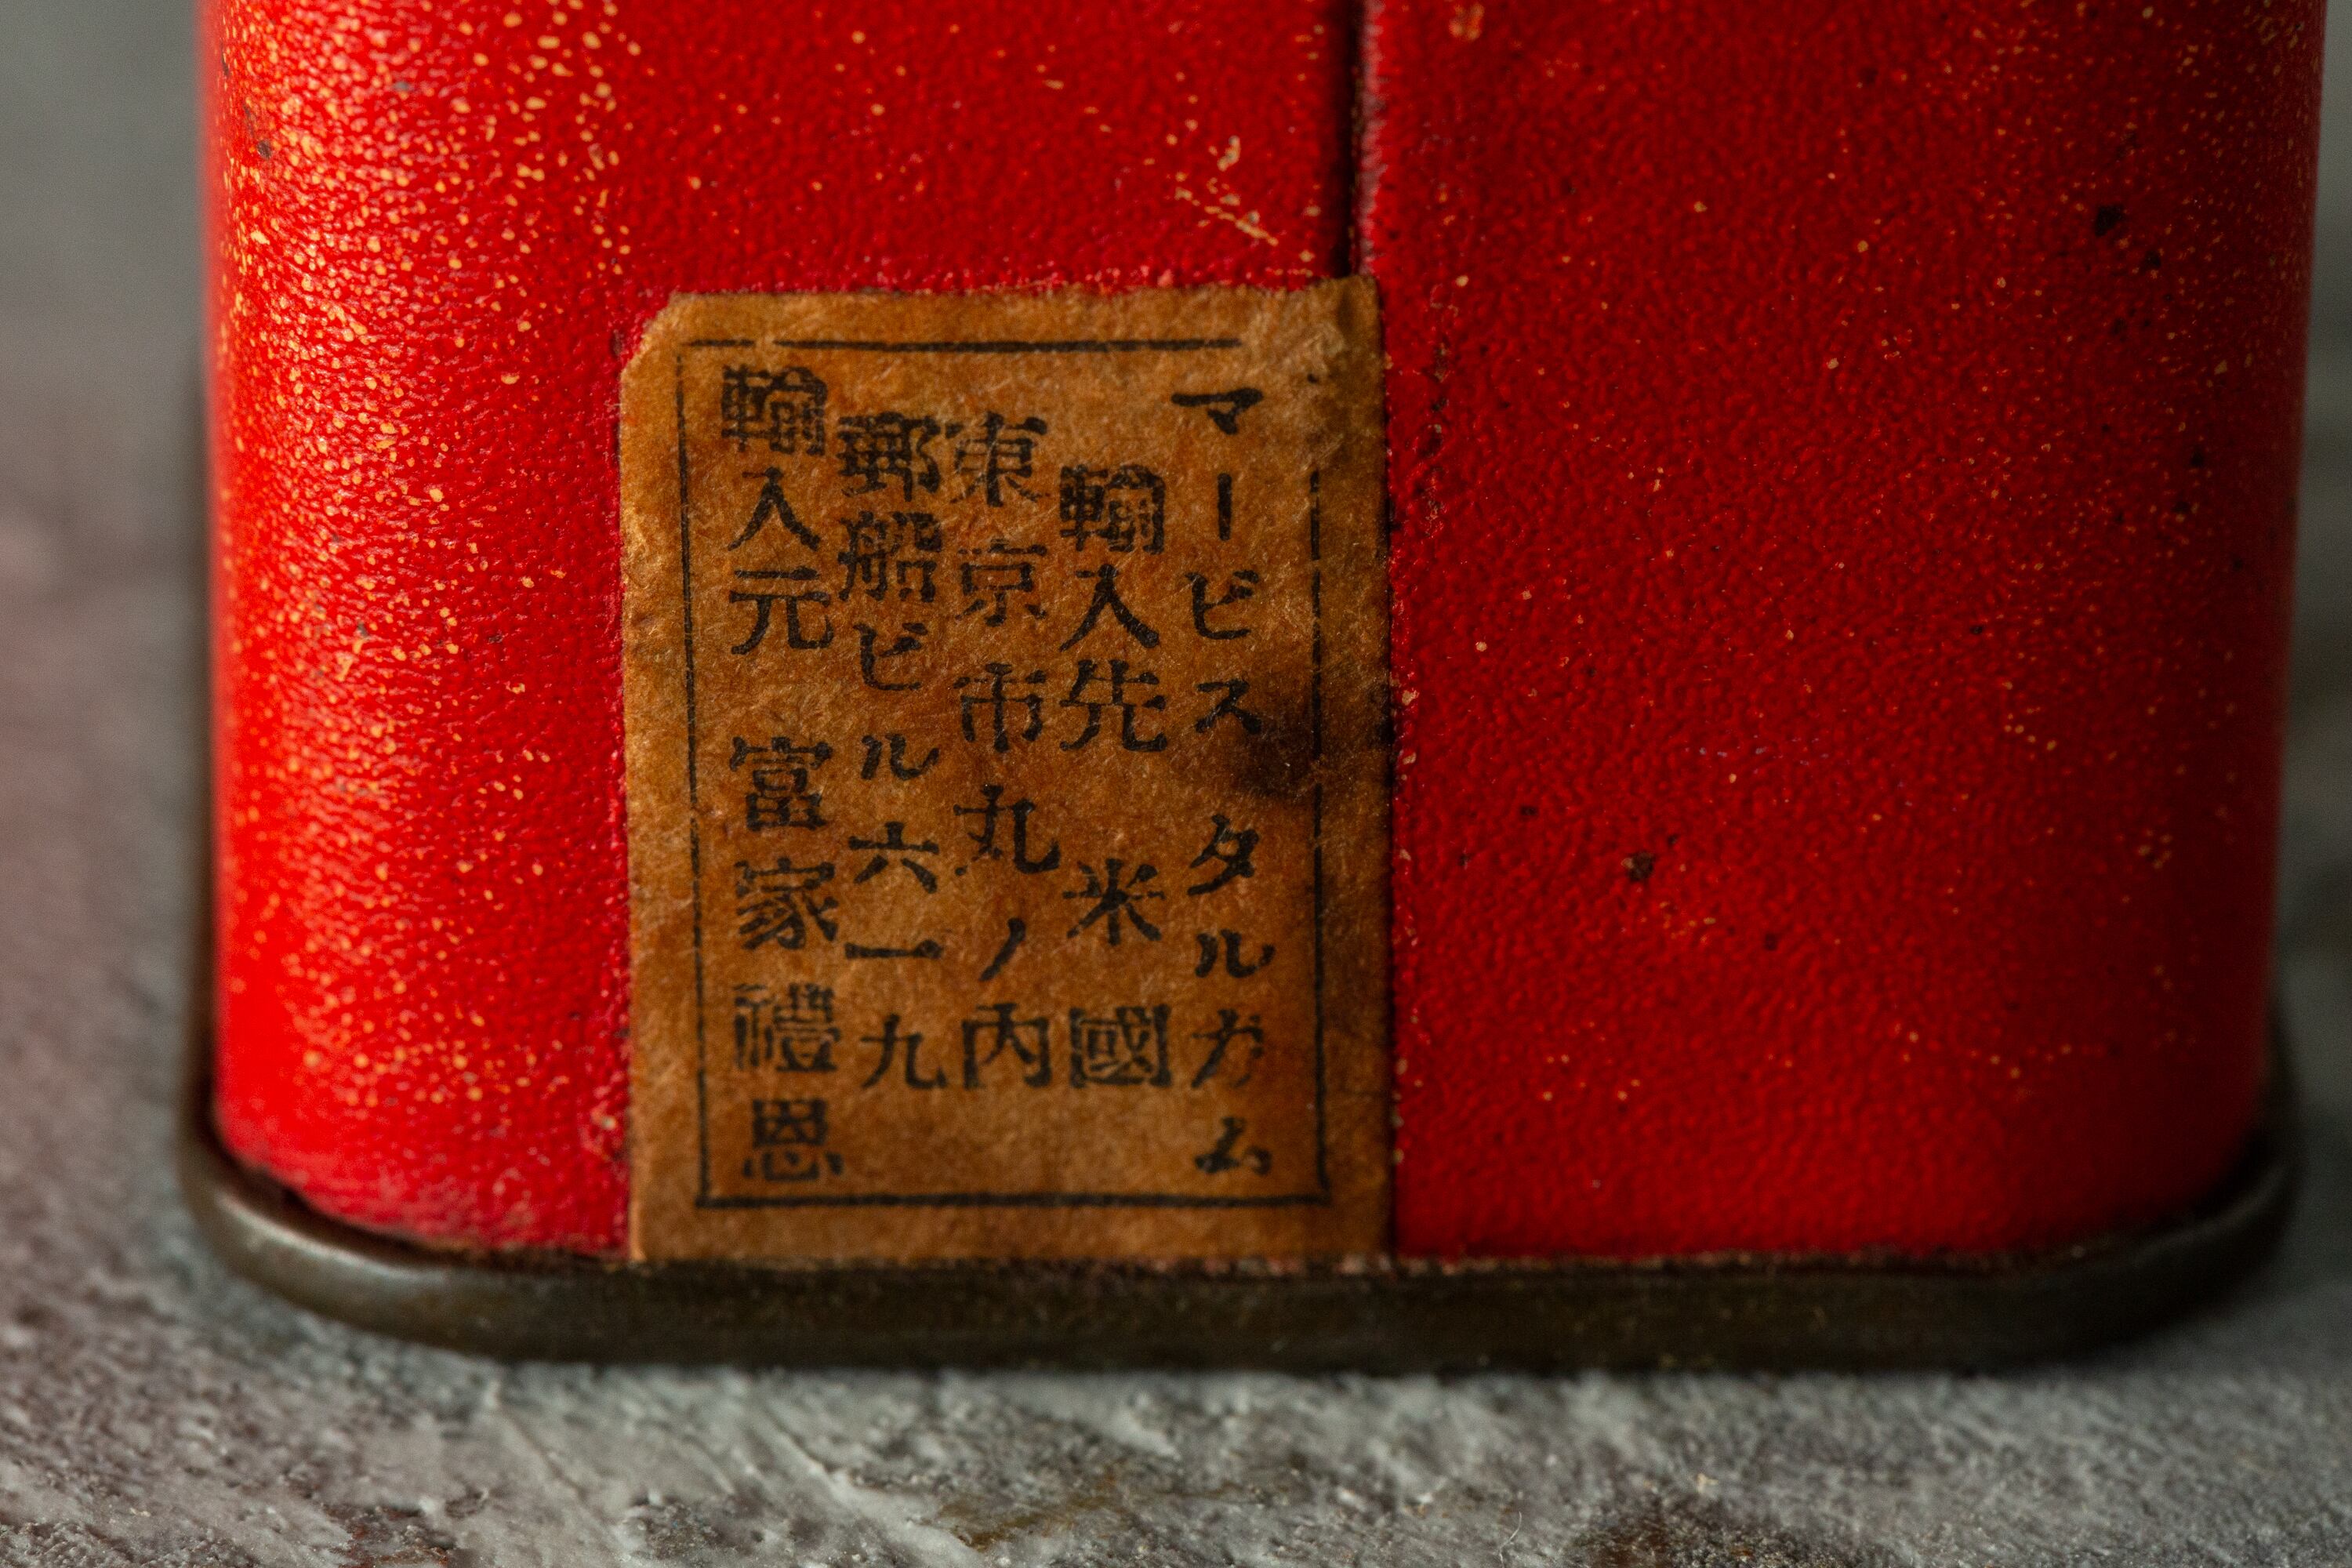 マービス タルカム
輸入先 米國
東京市丸ノ内
郵船ビル六一九
輸入元 富家禮恩